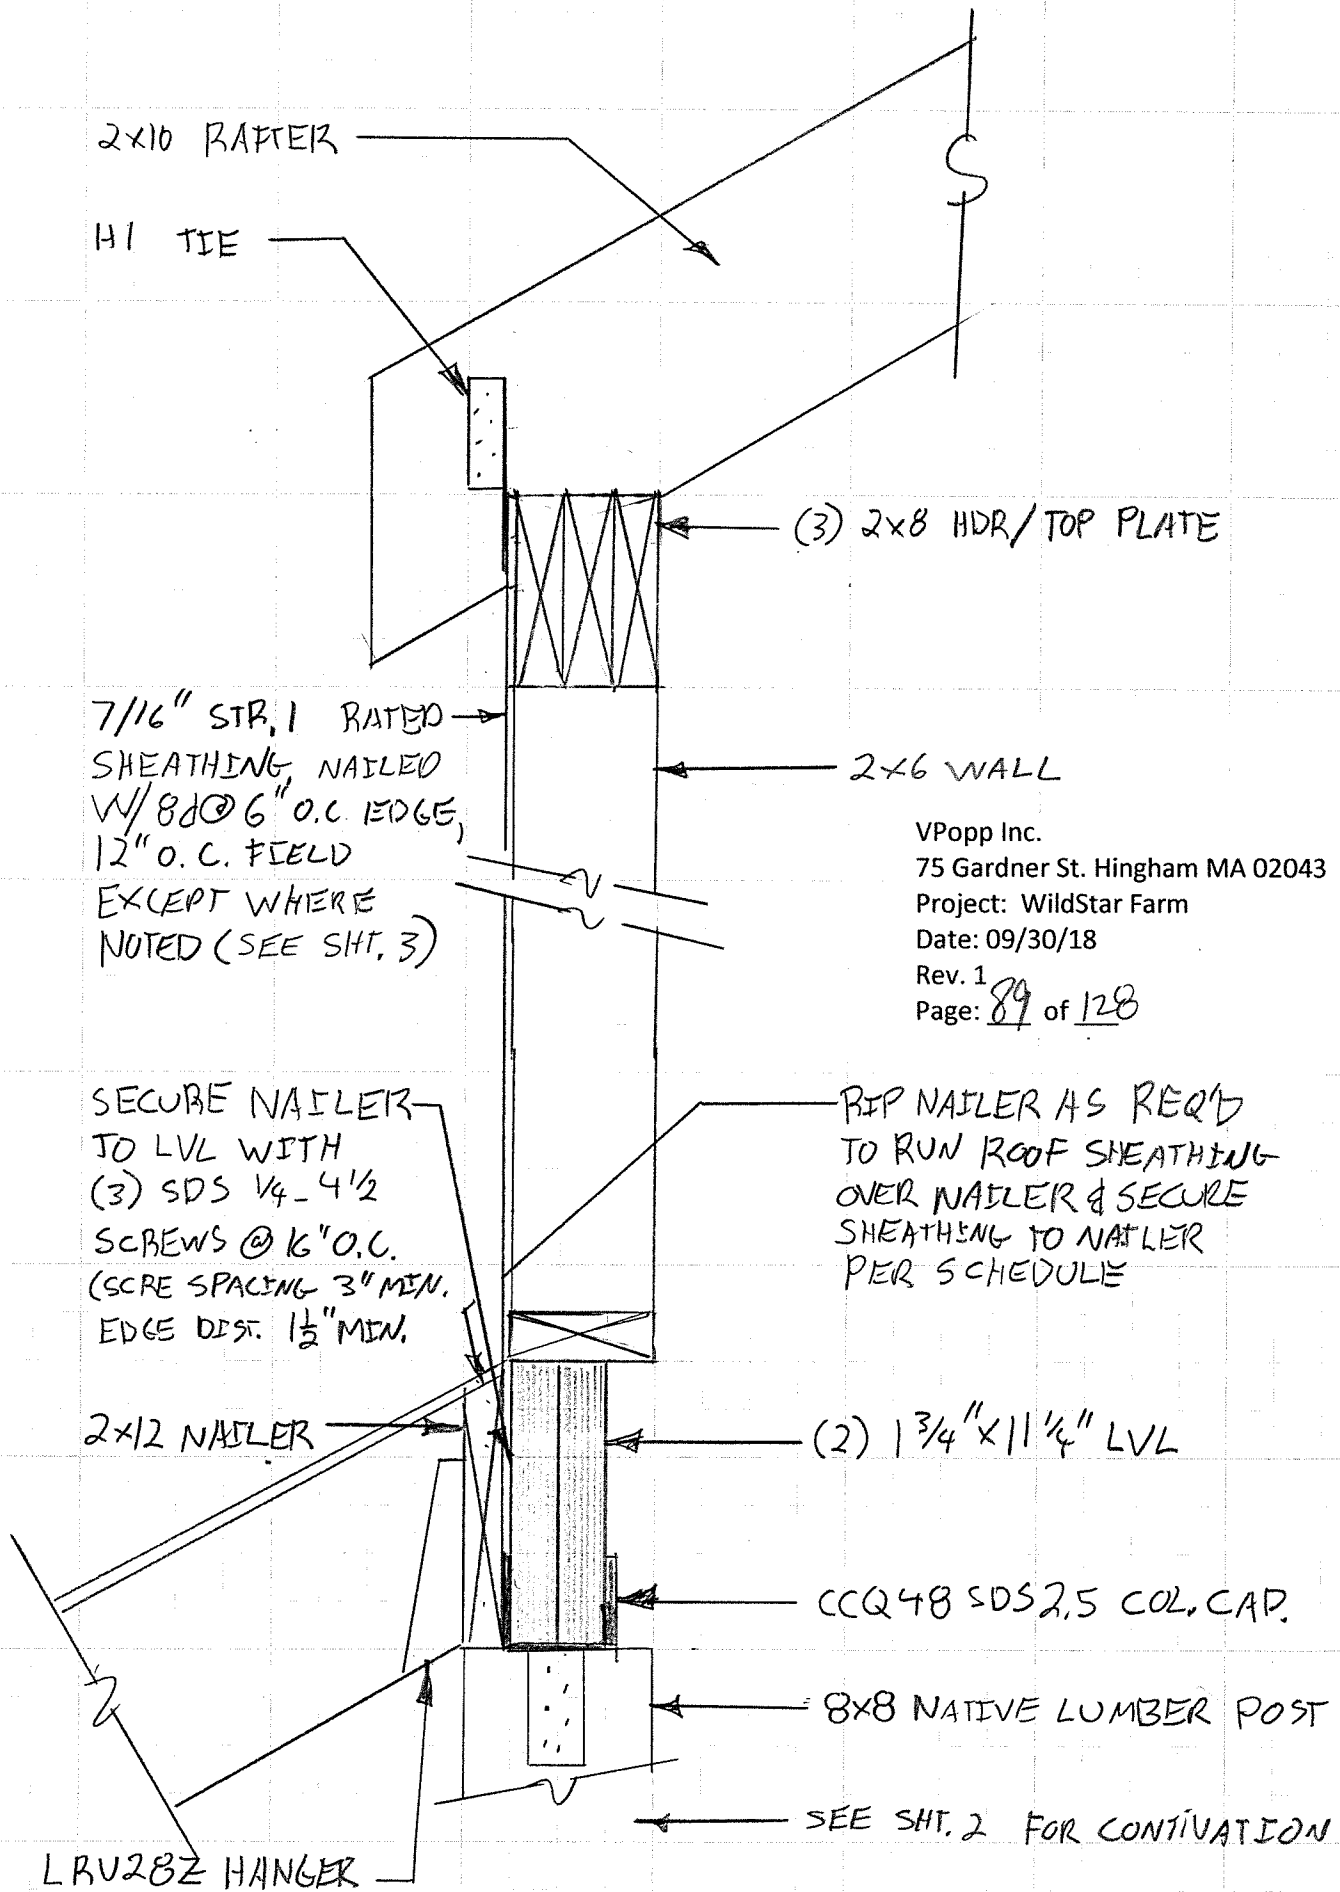 2x10 RAFTER
H1 TIE
(3) 2x8 HDR/TOP PLATE
7/16" STR, 1 RATED
SHEATHING, NAILED
W/8d@6" O.C. EDGE,
12" O.C. FIELD
EXCEPT WHERE
NOTED (SEE SHT. 3)
2x6 WALL
VPopp Inc.
75 Gardner St. Hingham MA 02043
Project: WildStar Farm
Date: 09/30/18
Rev. 1
Page: 89 of 128
SECURE NAILER
TO LVL WITH
(3) SDS 1/4-4 1/2
SCREWS @ 16" O.C.
(SCRE SPACING 3" MIN.
EDGE DIST. 1 1/2" MIN.
RIP NAILER AS REQ'D
TO RUN ROOF SHEATHING
OVER NAILER & SECURE
SHEATHING TO NAILER
PER SCHEDULE
2x12 NAILER
(2) 1 3/4" x 11 1/4" LVL
CCQ48 SDS2.5 COL. CAP.
8x8 NATIVE LUMBER POST
SEE SHT. 2 FOR CONTIVATION
LRU28Z HANGER